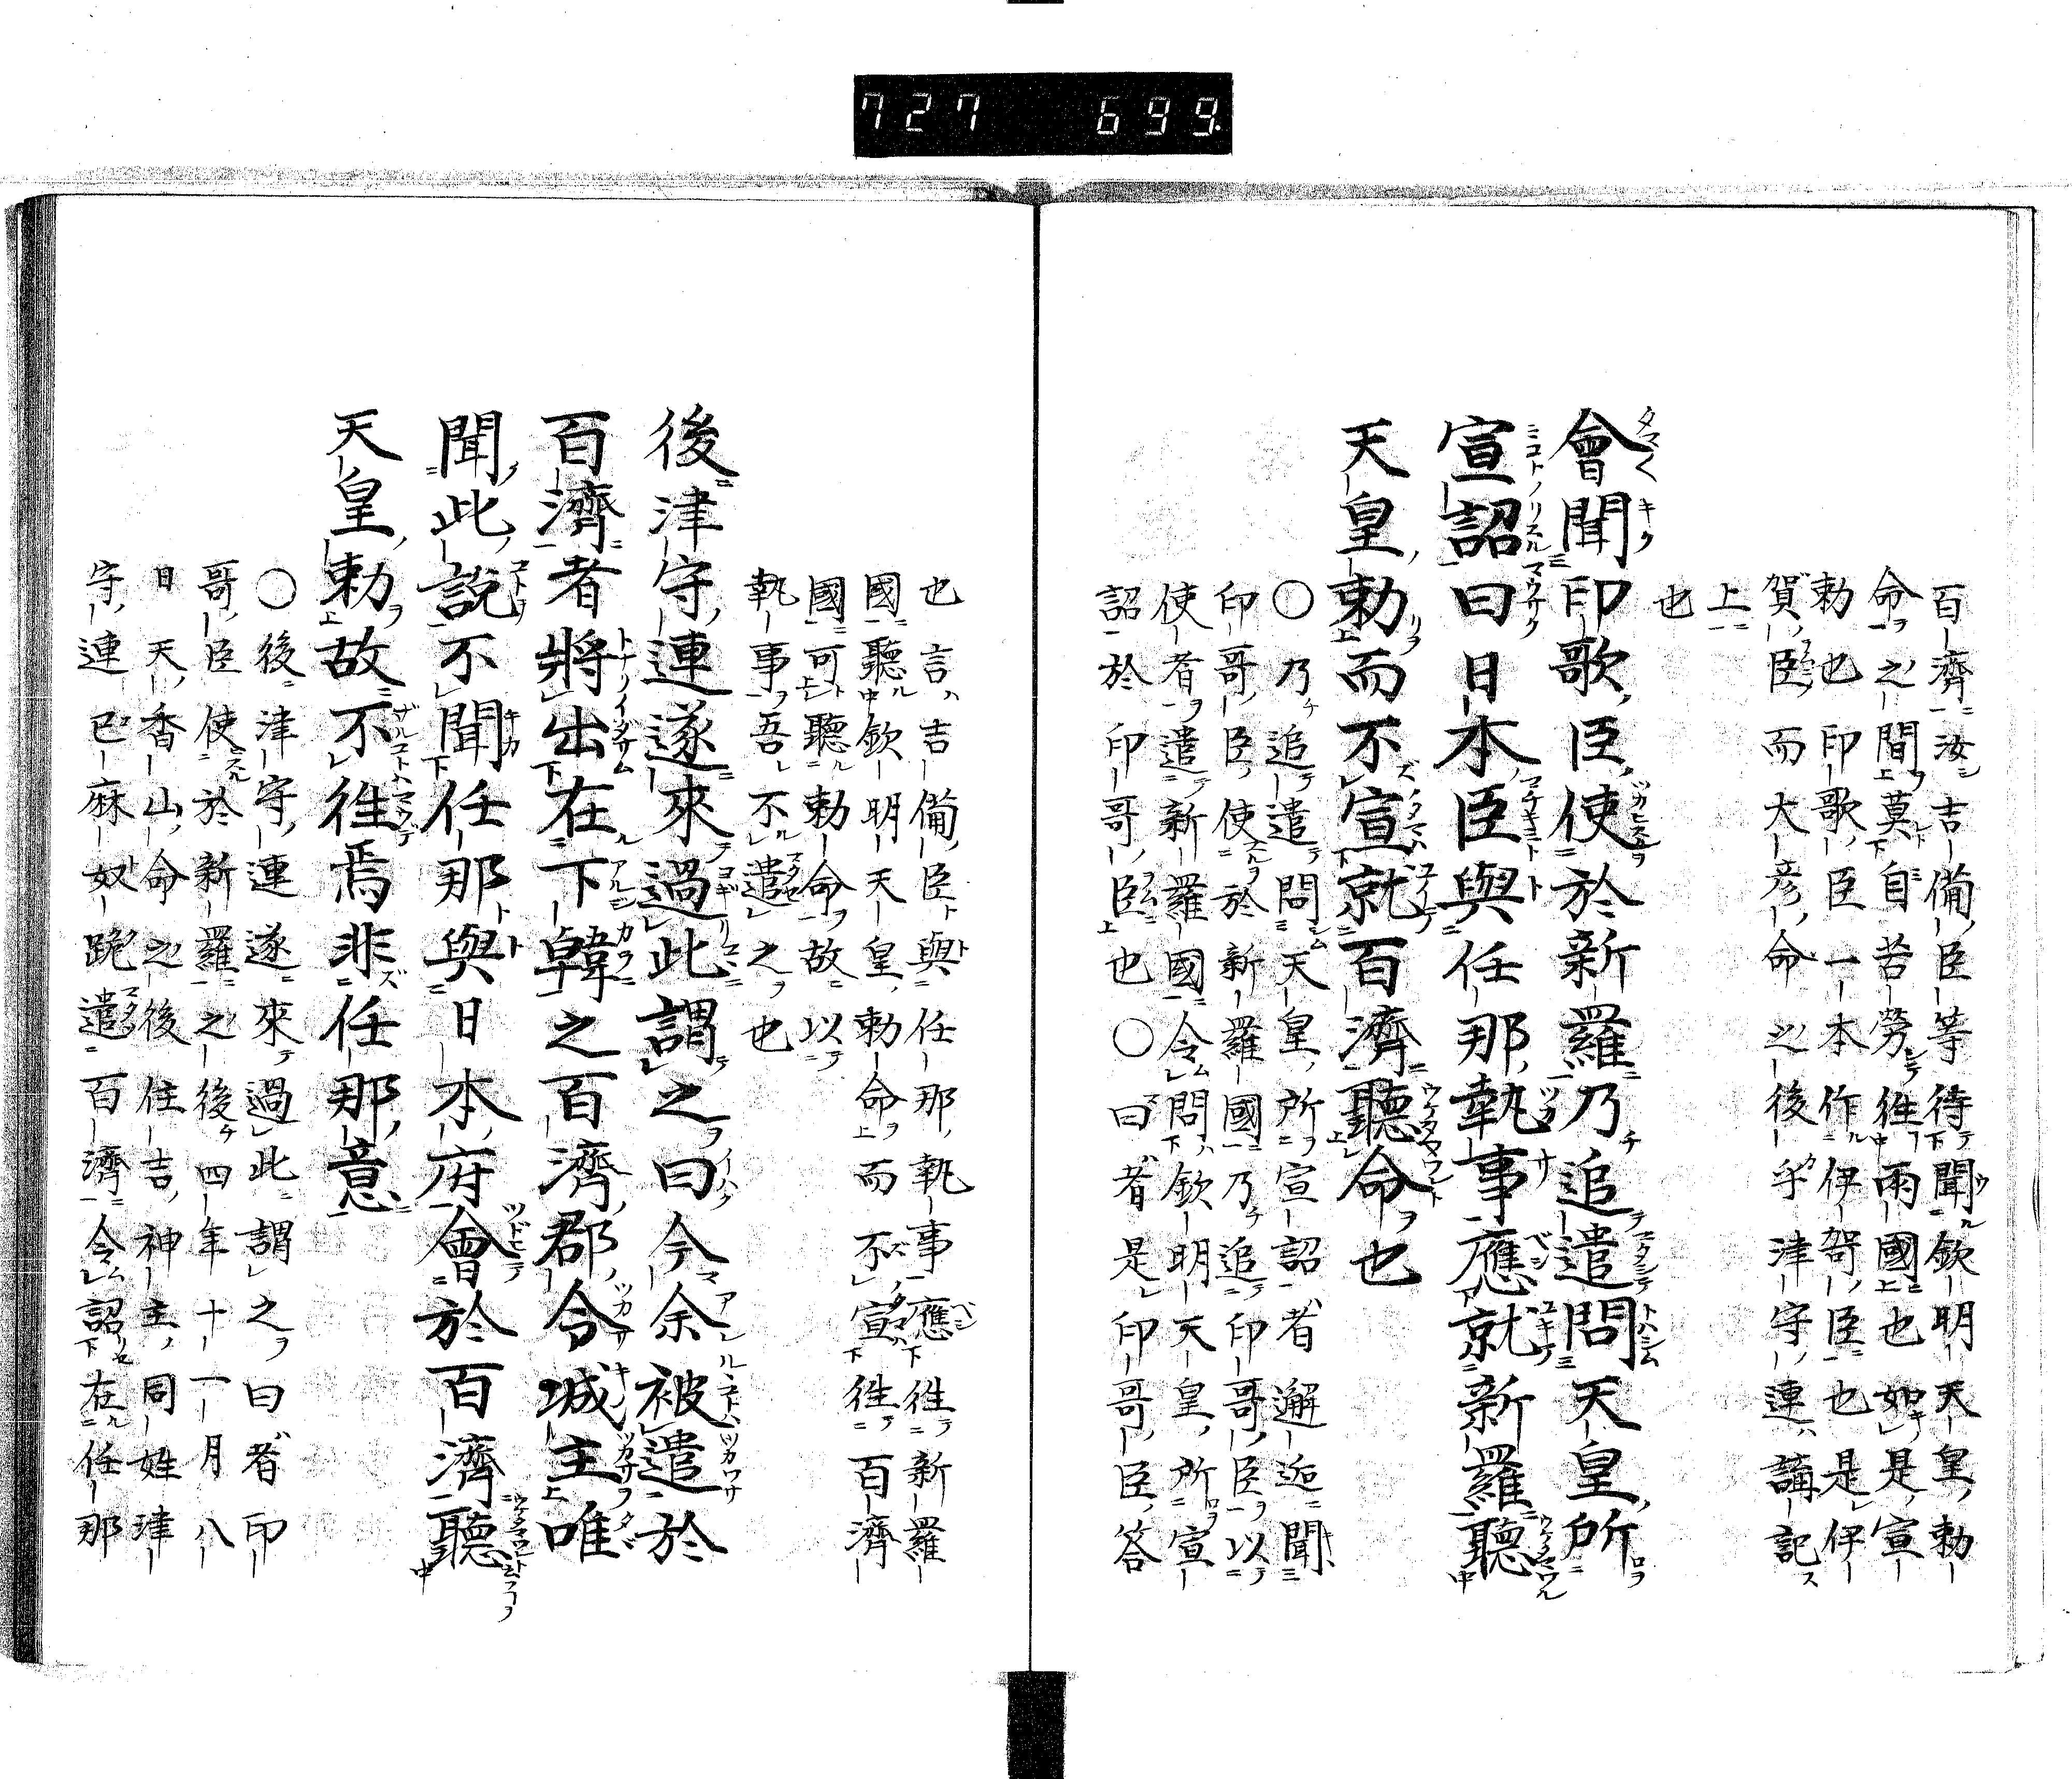 727 699.
百濟汝吉備臣等待聞欽明天皇勅
命之間莫自苦勞徃兩國也如是宣
勅也印歌臣一本作伊賀臣也是伊
賀臣而大彦命之後乎津守連講記
上
也
會聞印歌臣使於新羅乃追遣問天皇所
宣詔曰日本臣與任那執事應就新羅聽
天皇勅而不宣就百濟聽命也
〇乃追遣問天皇所宣詔者邂逅聞
印哥臣使於新羅國乃追印哥臣以
使者遣新羅國令問欽明天皇所宣
詔於印哥臣也〇曰者是印哥臣答
也言吉備臣與任那執事應徃新羅
國聽欽明天皇勅命而不宣徃百濟
國可聽勅命故以
執事吾不遣之也
後津守連遂來過此謂之曰今余被遣於
百濟者將出在下韓之百濟郡令城主唯
聞此説不聞任那與日本府會於百濟聽
天皇勅故不徃焉非任那意
〇後津守連遂來過此謂之曰者印
哥臣使於新羅之後四年十一月八
日天香山命之後住吉神主同姓津
守連巴麻奴跪遣百濟令詔在任那